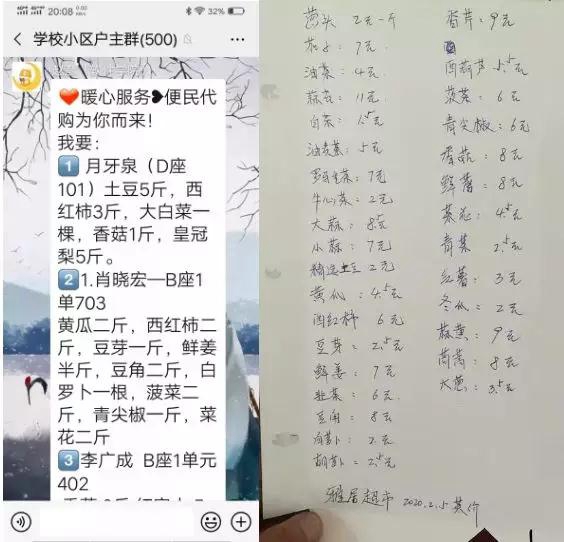 20:08
32%
学校小区户主群(500)
❤暖心服务❥便民代
购为你而来！
我要：
1 月牙泉（D座
101）土豆5斤，西
红柿3斤，大白菜一
棵，香菇1斤，皇冠
梨5斤。
2 1.肖晓宏—B座1
单703
黄瓜二斤，西红柿二
斤，豆芽一斤，鲜姜
半斤，豆角二斤，白
罗卜一根，菠菜二
斤，青尖椒一斤，菜
花二斤
3 李广成 B座1单元
402
茴头 2元一个
茄子：7元
油菜：4元
蒜苔：11元
白菜：1.5元
油麦菜：5元
生菜：7元
牛心菜：2元
大蒜：8.5元
小蒜：7元
精选土豆2元
黄瓜：4.5元
西红柿 6元
豆芽：2.5元
鲜姜：7元
韭菜：6元
豆角：8元
白萝卜：2元
胡萝卜：2.5元
香芹：9元
西葫芦 5.5元
菠菜：6元
青尖椒：6元
香菇：8元
鲜蘑：8元
菜花：4.5元
青菜 2.5元
红薯：3元
冬瓜：2元
蒜黄：9元
茼蒿：8元
大葱：3.5元
雅居超市 2020.2.5菜价